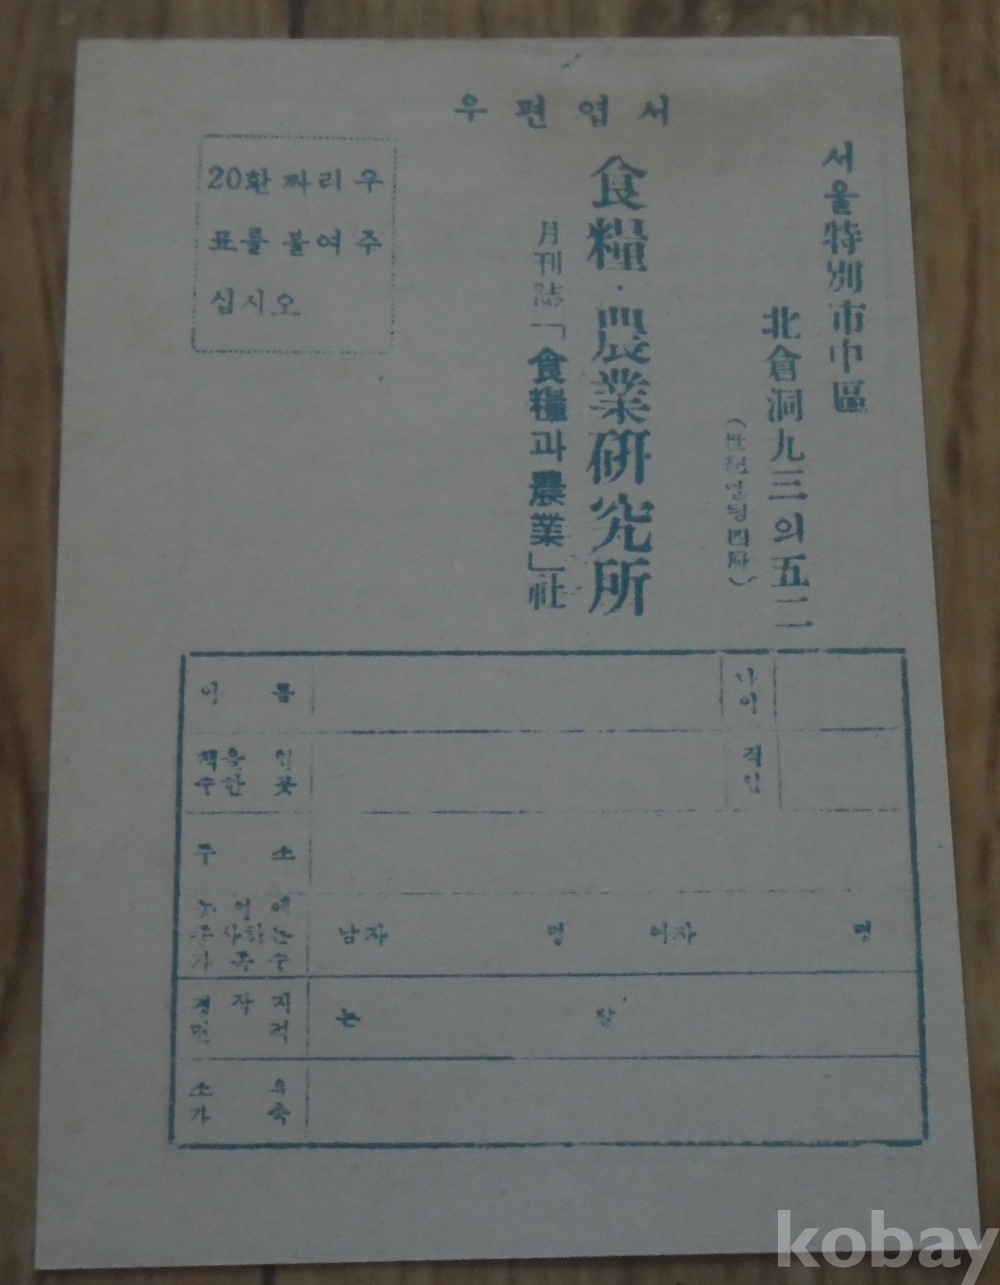 우편엽서
서울特別市中區
北倉洞九三의五二
(世紀빌딩四層)
食糧·農業硏究所
月刊誌「食糧과農業」社
20환짜리우
표를붙여주
십시오
이름
나이
책을 읽
수한 곳
직업
주소
농어에
종사하는
가족수
남자 명 여자 명
경작지
면적
논 밭
소유
가축
kobay